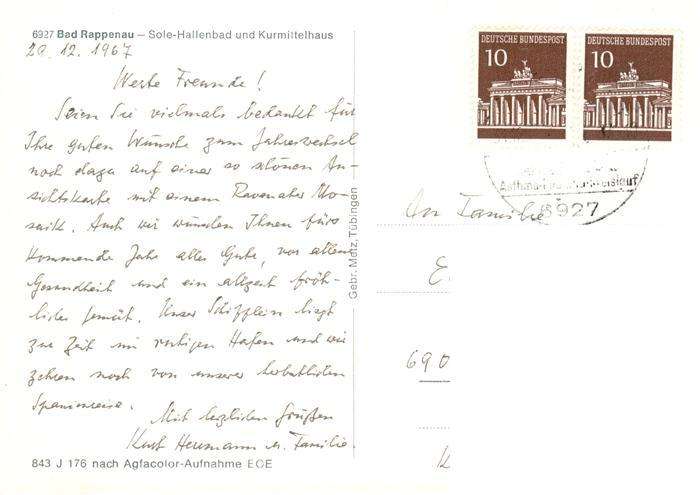 6927 Bad Rappenau – Sole-Hallenbad und Kurmittelhaus
20.12.1967
Werte Freunde!
Seien Sie vielmals bedankt für
Ihre guten Wünsche zum Jahreswechsel
noch dazu auf einer so schönen An-
sichtskarte mit einem Ravenater Mo-
saik. Auch wir wünschen Ihnen fürs
kommende Jahr alles Gute, vor allem
Gesundheit und ein allzeit fröh-
liches Gemüt. Unser Schifflein liegt
zur Zeit im ruhigen Hafen und wir
zehren noch von unserer herbstlichen
Spanienreise.
Mit herzlichen Grüßen
Kurt Hermann u. Familie.
843 J 176 nach Agfacolor-Aufnahme ECE
Gebr. Metz, Tübingen
DEUTSCHE BUNDESPOST
10
DEUTSCHE BUNDESPOST
10
6927
An Familie
E.
690